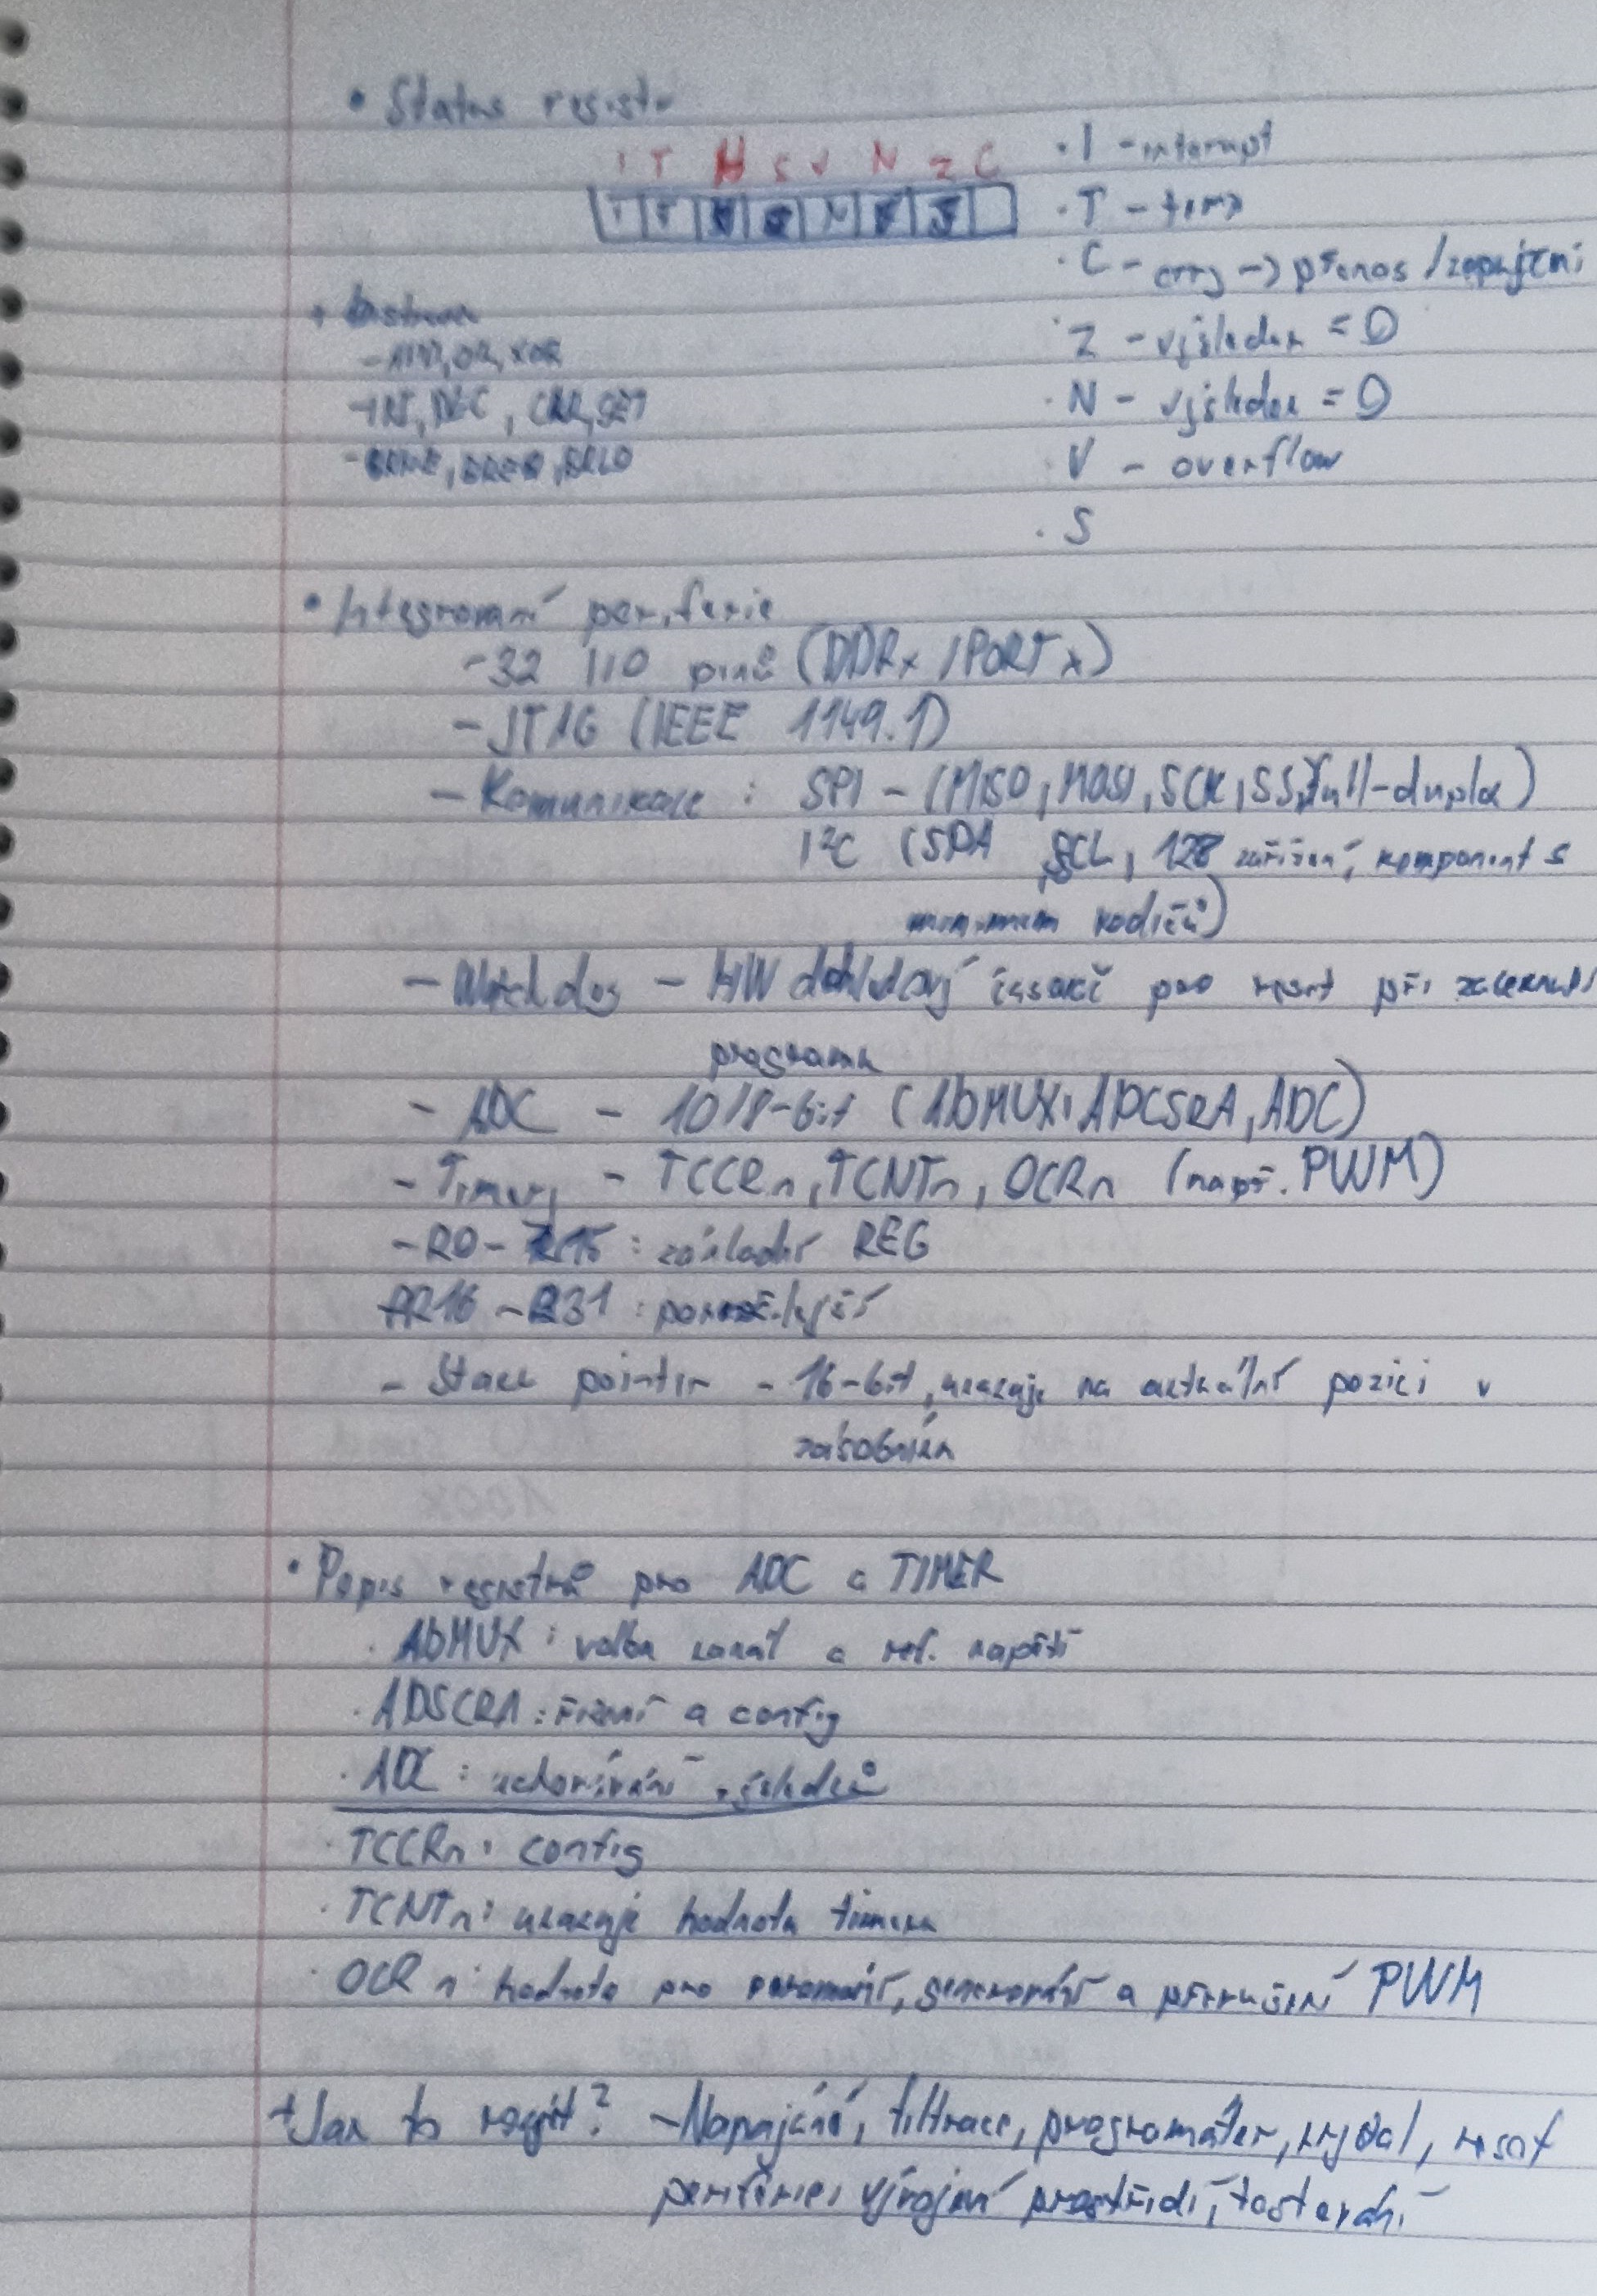 • Status registr
I T H S V N Z C
· I - interupt
· T - temp
· C - crry -> přenos / zapůjční
· Z - výsledek = 0
· N - výsledek = 0
· V - overflow
· S
- AND, OR, XOR
- INT, DEC, CLR, SET
- BRNE, BREQ, BRLO
• Integrovaní periferie
- 32 I/O pinů (DDRx / PORTx)
- JTAG (IEEE 1149.1)
- Komunikace : SPI - (MISO, MOSI, SCK, SS, full-duplex)
I²C (SDA, SCL, 128 zařízení, komponent s
minimem vodičů)
- Watchdog - HW dohledový časovač pro resert při zaseknutí
programu
- ADC - 10/8-bit (ADMUX, ADCSRA, ADC)
- Timery - TCCRn, TCNTn, OCRn (např. PWM)
- R0 - R15 : základní REG
R16 - R31 : používanější
- Stack pointer - 16-bit, ukazuje na aktuální pozici v
zásobníku
• Popis registrů pro ADC a TIMER
· ADMUX : volba kanál a ref. napětí
· ADSCRA : řízení a config
· ADC : uchovávání výsledků
· TCCRn : config
· TCNTn : ukazuje hodnotu timeru
· OCRn : hodnota pro porovnání, generování a přerušení PWM
+ Jak to využít? - Napájení, filtrace, programátor, krystal, reset
periferie, vývojové prostředí, testování